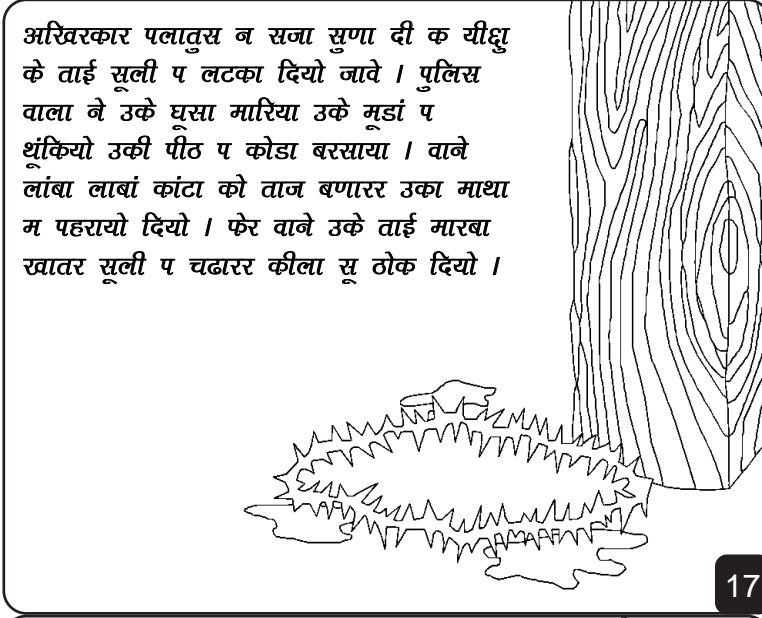 अखिरकार पलातुस न सजा सुणा दी क यीशु
के ताई सूली प लटका दियो जावे ।  पुलिस
वाला ने उके घूसा मारिया उके मूडां प
थूंकियो उकी पीठ प कोडा बरसाया । वाने
लांबा लाबां कांटा को ताज बणारर उका माथा
म पहरायो दियो । फेर वाने उके ताई मारबा
खातर सूली प चढारर कीला सू ठोक दियो ।
17